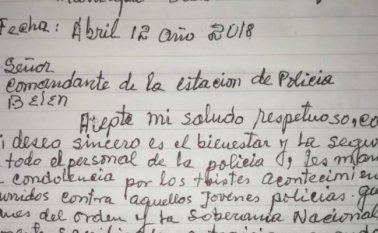 Fecha: Abril 12 año 2018
Señor
Comandante de la estacion de Policia
Belen
Acepte mi saludo respetuoso, co
i deseo sincero es el bienestar y la segu
todo el personal de la policia, les man
condolencia por los tristes acontecimien
unidos contra aquellos Jovenes policias. qu
nes del orden y la Soberania Nacional